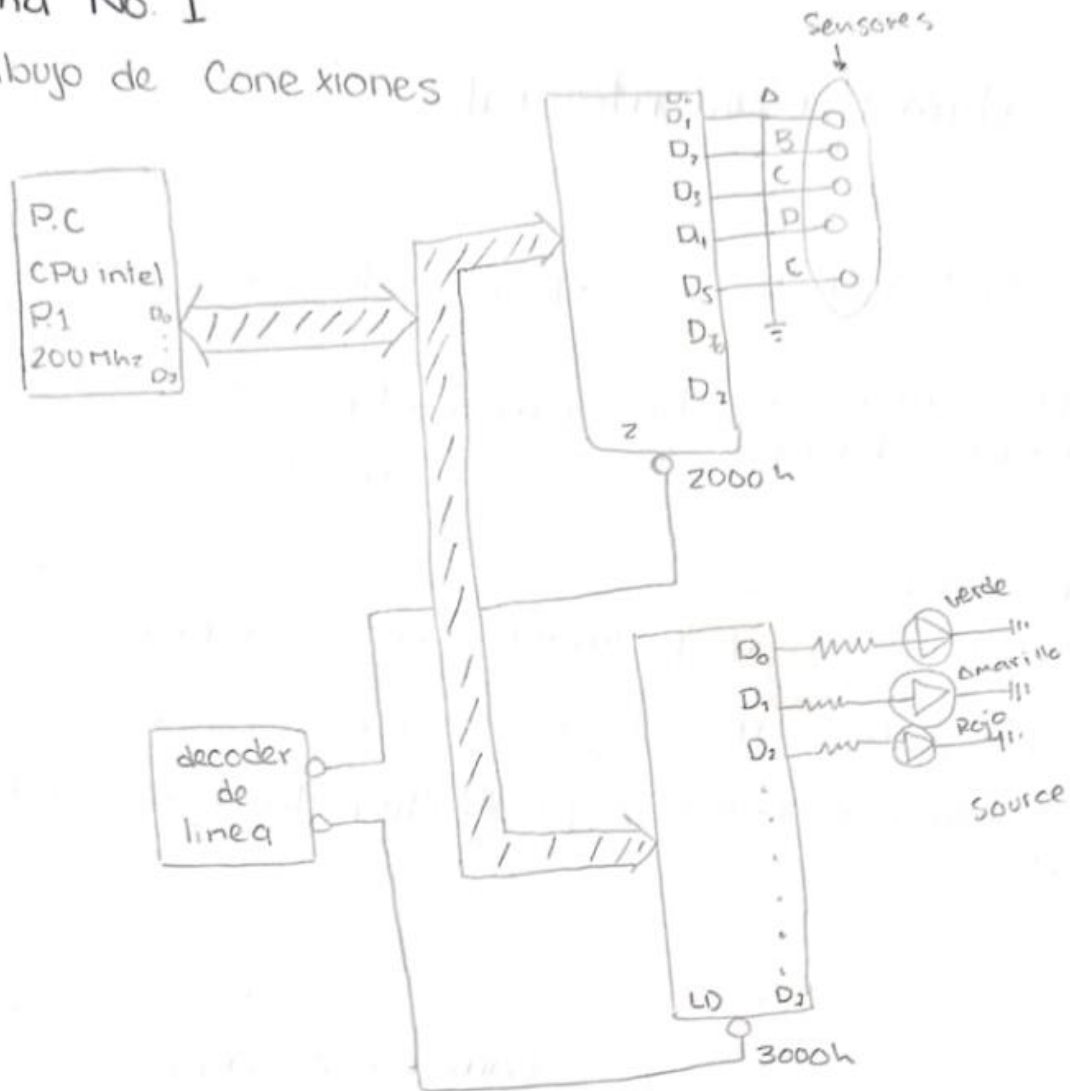 No. 1
bujo de Conexiones
Sensores
P.C
CPU intel
P.1
200 Mhz
D0
D7
D1
D2
D3
D4
D5
D6
D7
A
B
C
D
C
Z
2000h
decoder
de
linea
D0
D1
D2
D7
LD
3000h
verde
Amarillo
Rojo
Source